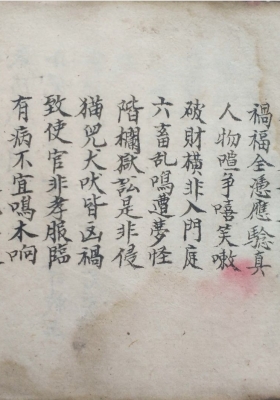 禍福全憑應驗真
人物喧爭嘻笑嗽
破財橫非入門庭
六畜乱鳴遭夢怪
階欄獄訟是非侵
猫児犬吠皆凶禍
致使官非孝服臨
有病不宜鳴木响